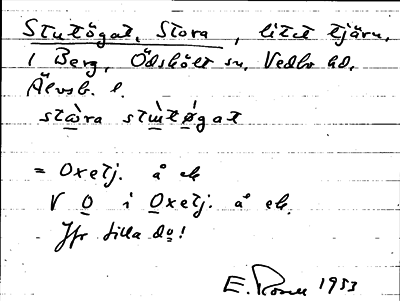 Stutögat, Stora, litet tjärn,
i Berg, Ödskölt sn, Vedbo hd,
Älvsb. l.
stæ̀ra stu̇̀tø̀gat
= Oxetj. å ek
V O i Oxetj. å ek.
Jfr Lilla do!
E. 1953